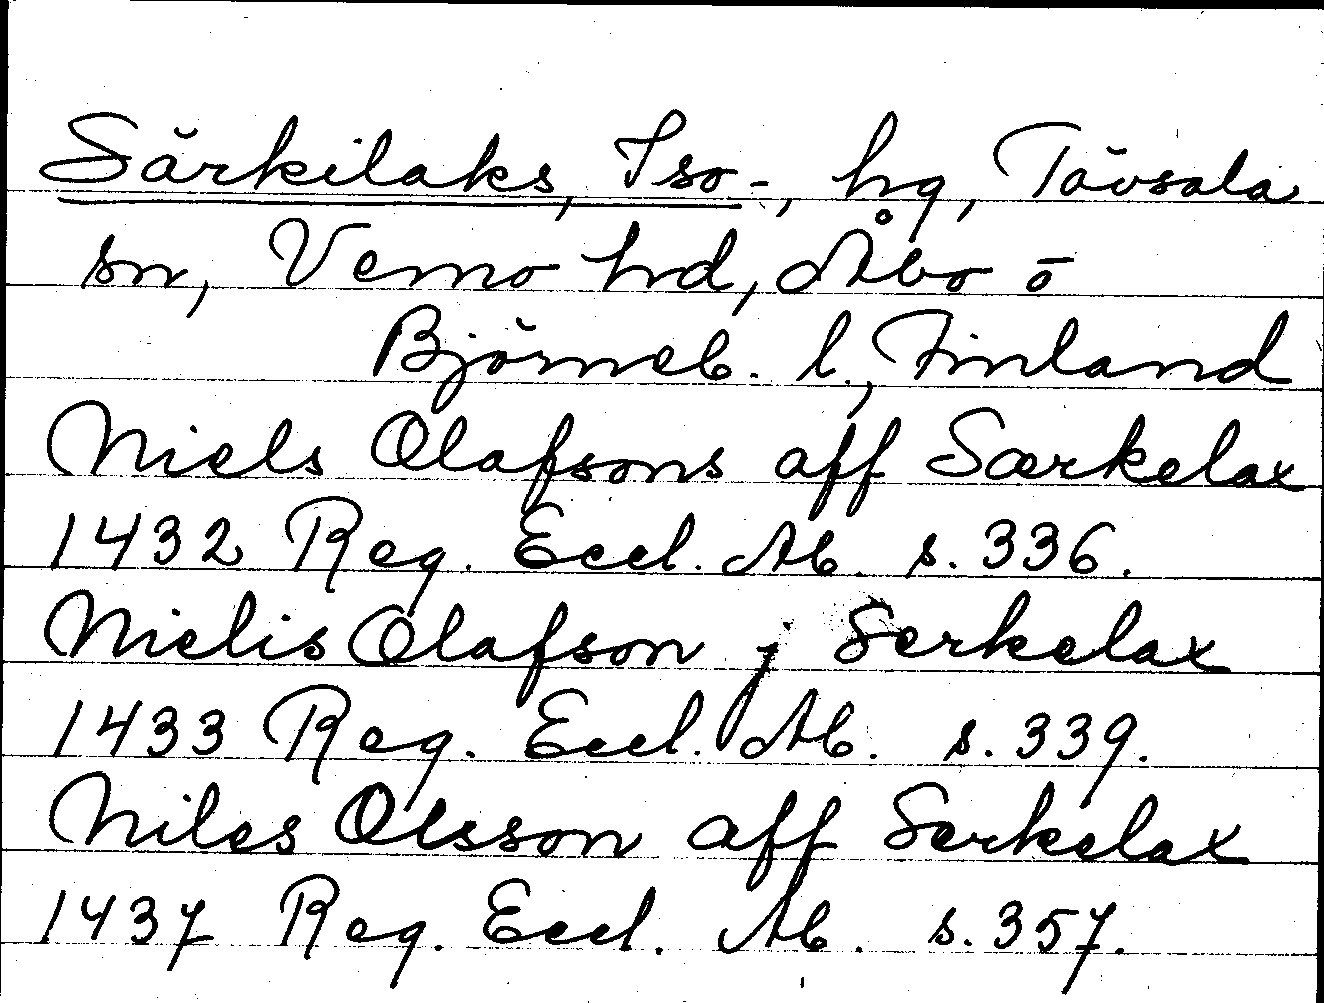 Särkilaks, Iso-, hg, Tävsala
sn, Vemo hrd, Åbo o
Björneb. l., Finland
Niels Olafsons aff Særkelax
1432 Reg. Eccl. Ab. s. 336.
Nielis Olafson j Serkelax
1433 Reg. Eccl. Ab. s. 339.
Niles Olsson aff Serkelax
1437 Reg. Eccl. Ab. s. 357.